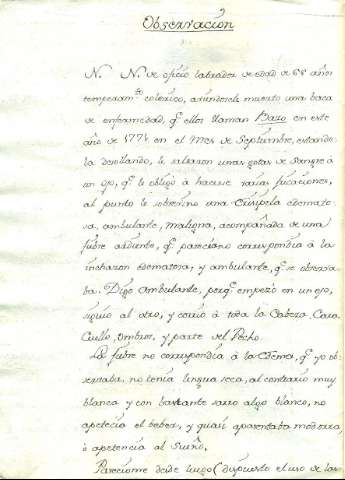 Observacion
N. N. de oficio labrador de edad de 68 años
temperam.to colerico, aviendosele muerto una baca
de enfermedad, q.e ellos llaman Bazo en este
año de 1774 en el mes de Septiembre, estando
la desollando, le saltaron unas gotas de sangre à
un ojo, q.e le obligò à hacerse varias fricaciones,
al punto le sobrevino una Erisipela edemato
sa, ambulante, maligna, acompañada de una
fiebre ardiente, q.e pareciano correspondia à la
inchazon edematosa, y ambulante, q.e se observa
ba. Digo Ambulante, porq.e empezò en un ojo,
siguiò al otro, y corriò à toda la Cabeza, Cara
Cuello, ombros, y parte del Pecho.
La fiebre no correspondia à la Edema, q.e yo ob
servaba, no tenia lengua seca, al contrario muy
blanca y con bastante sarro algo blanco, no
apetecia el beber, y quasi aparentaba modorra,
ò apetencia al Sueño.
Pareciome desde luego (dispuesto el uso de los